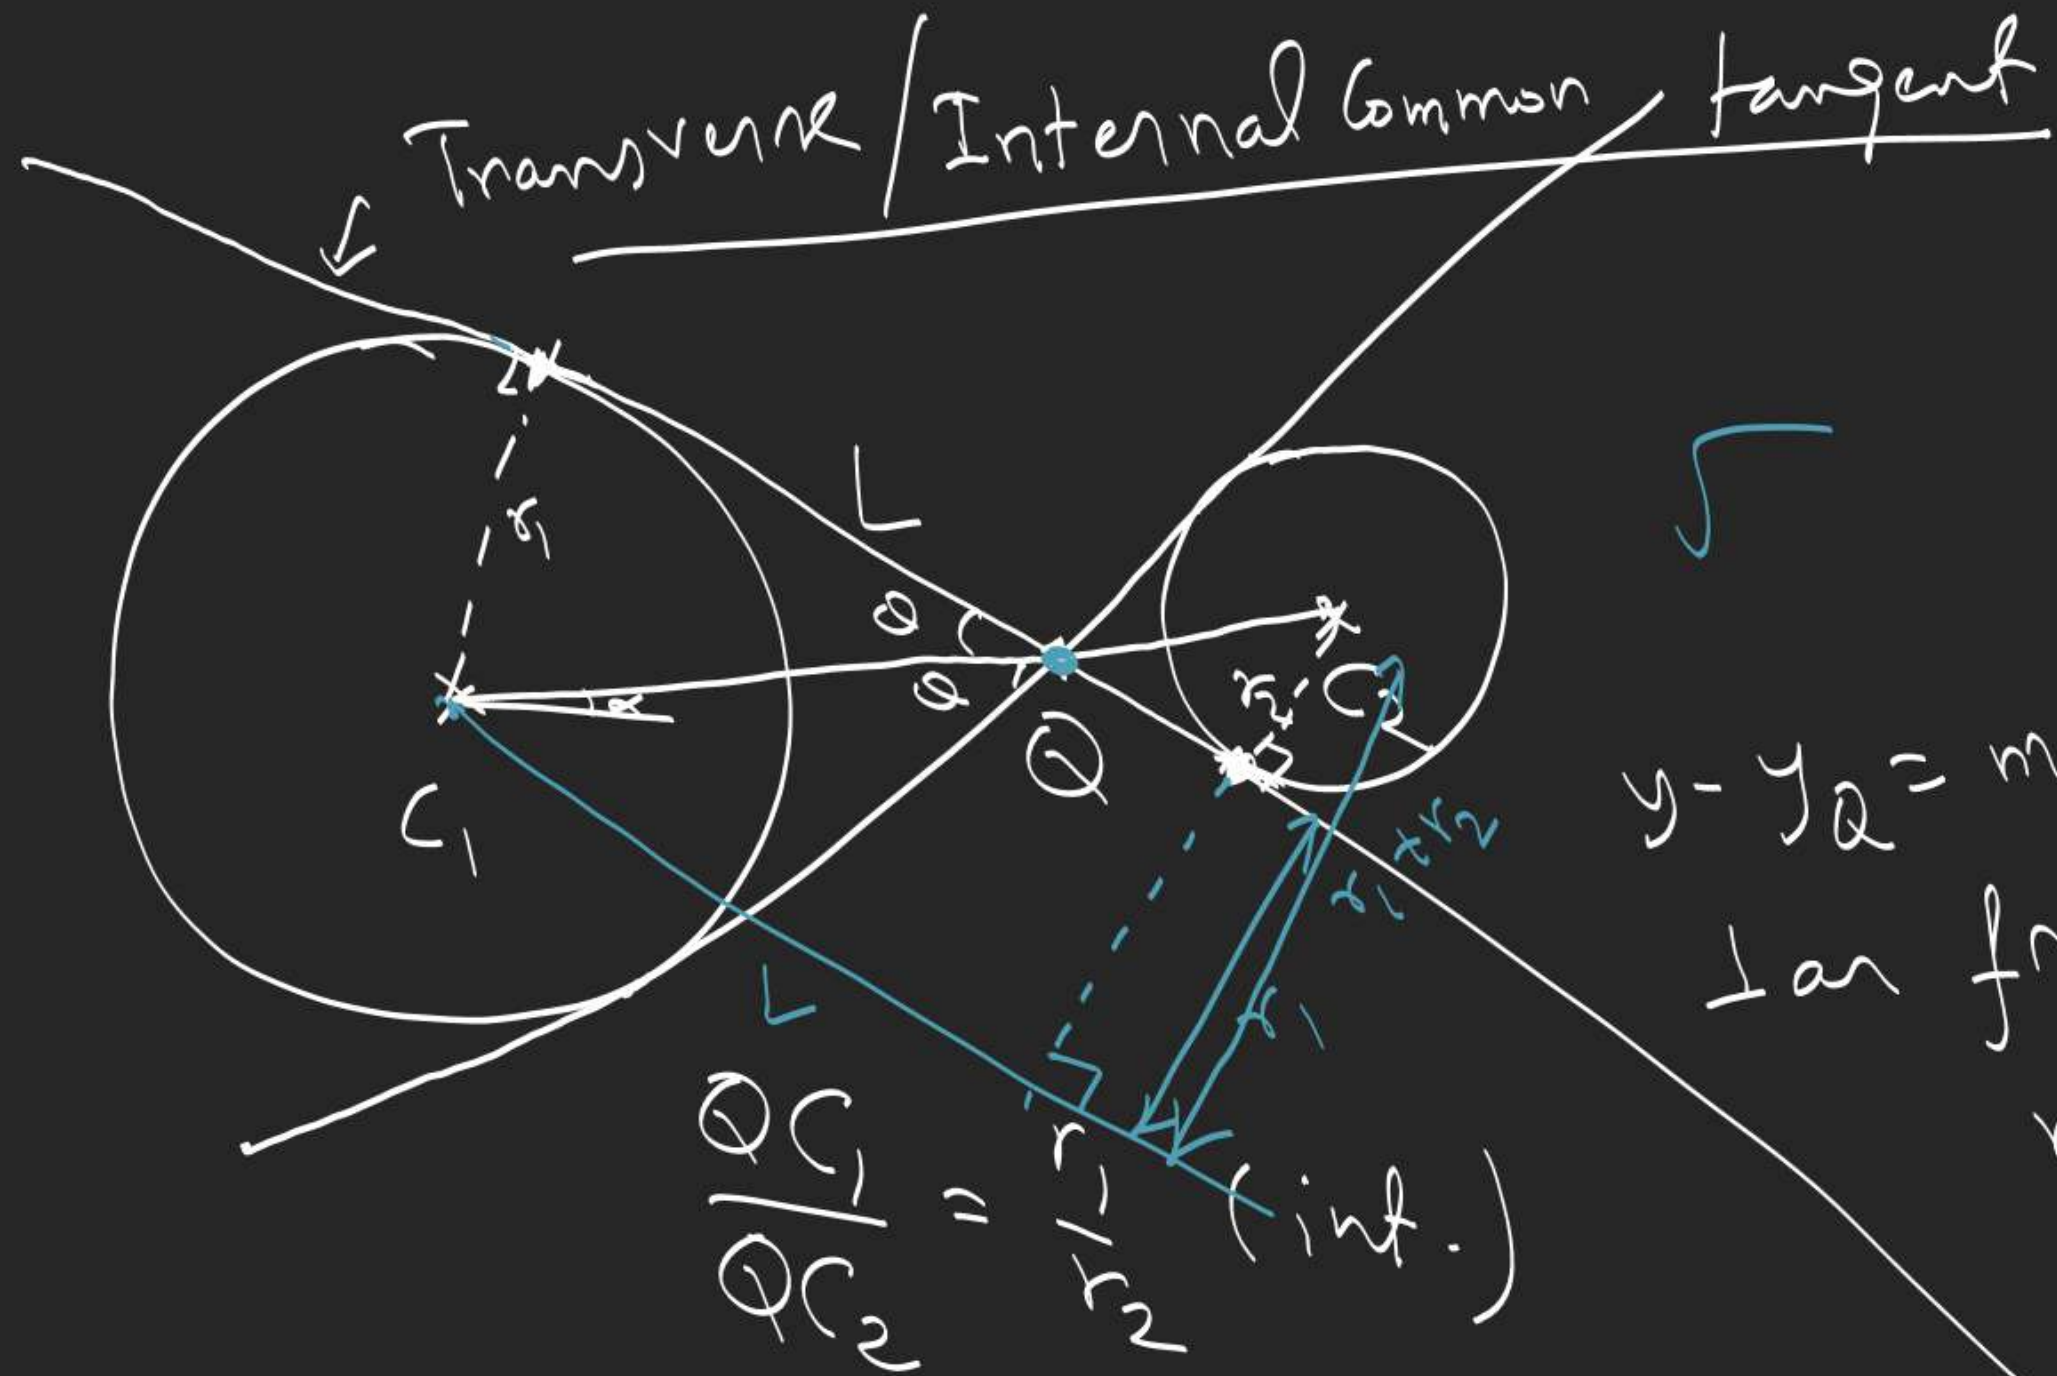 Transverse/Internal Common tangent
L
r₁
θ
θ
α
C₁
Q
r₂
C₂
√
y - y_Q = m
r₁ + r₂
r₁
L
⊥ar fr
QC₁/QC₂ = r₁/r₂ (int.)